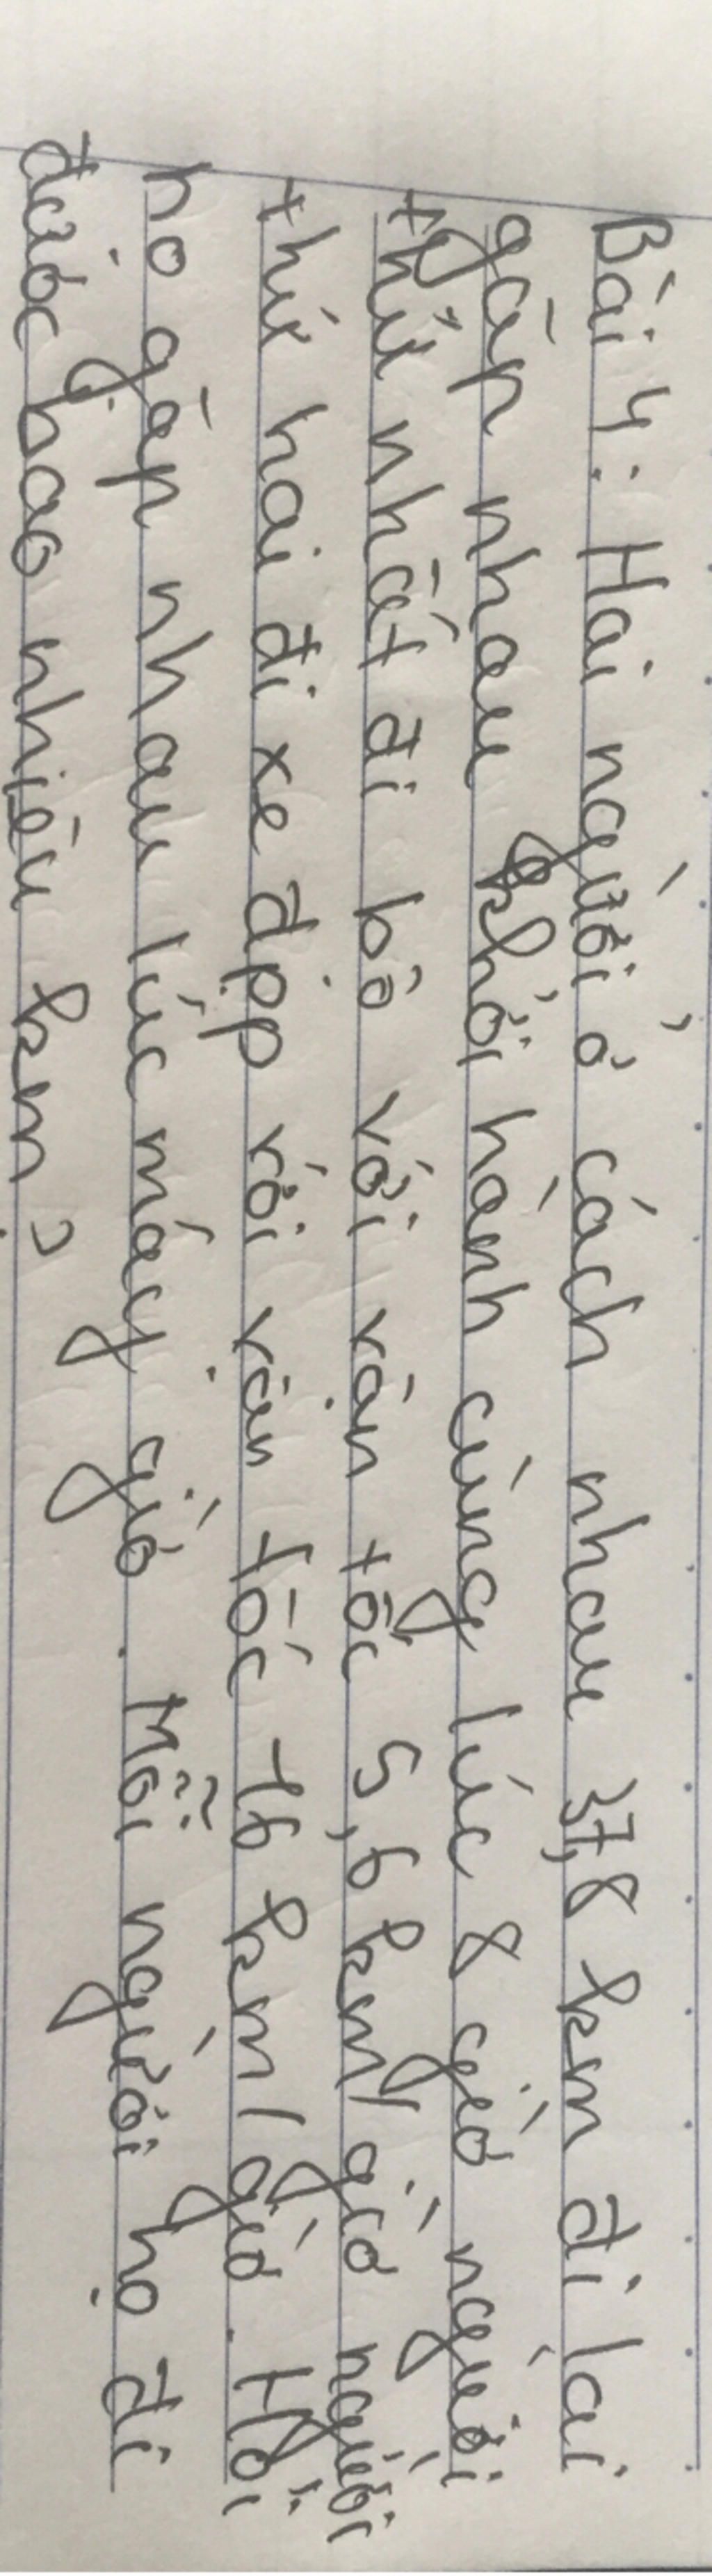 Bài 4: Hai người ở cách nhau 37,8 km đi lại
gặp nhau khởi hành cùng lúc 8 giờ người
thứ nhất đi bộ với vận tốc 5,6 km/giờ người
thứ hai đi xe đạp với vận tốc 16 km/giờ. Hỏi
họ gặp nhau lúc mấy giờ. Mỗi người họ đi
được bao nhiêu km?